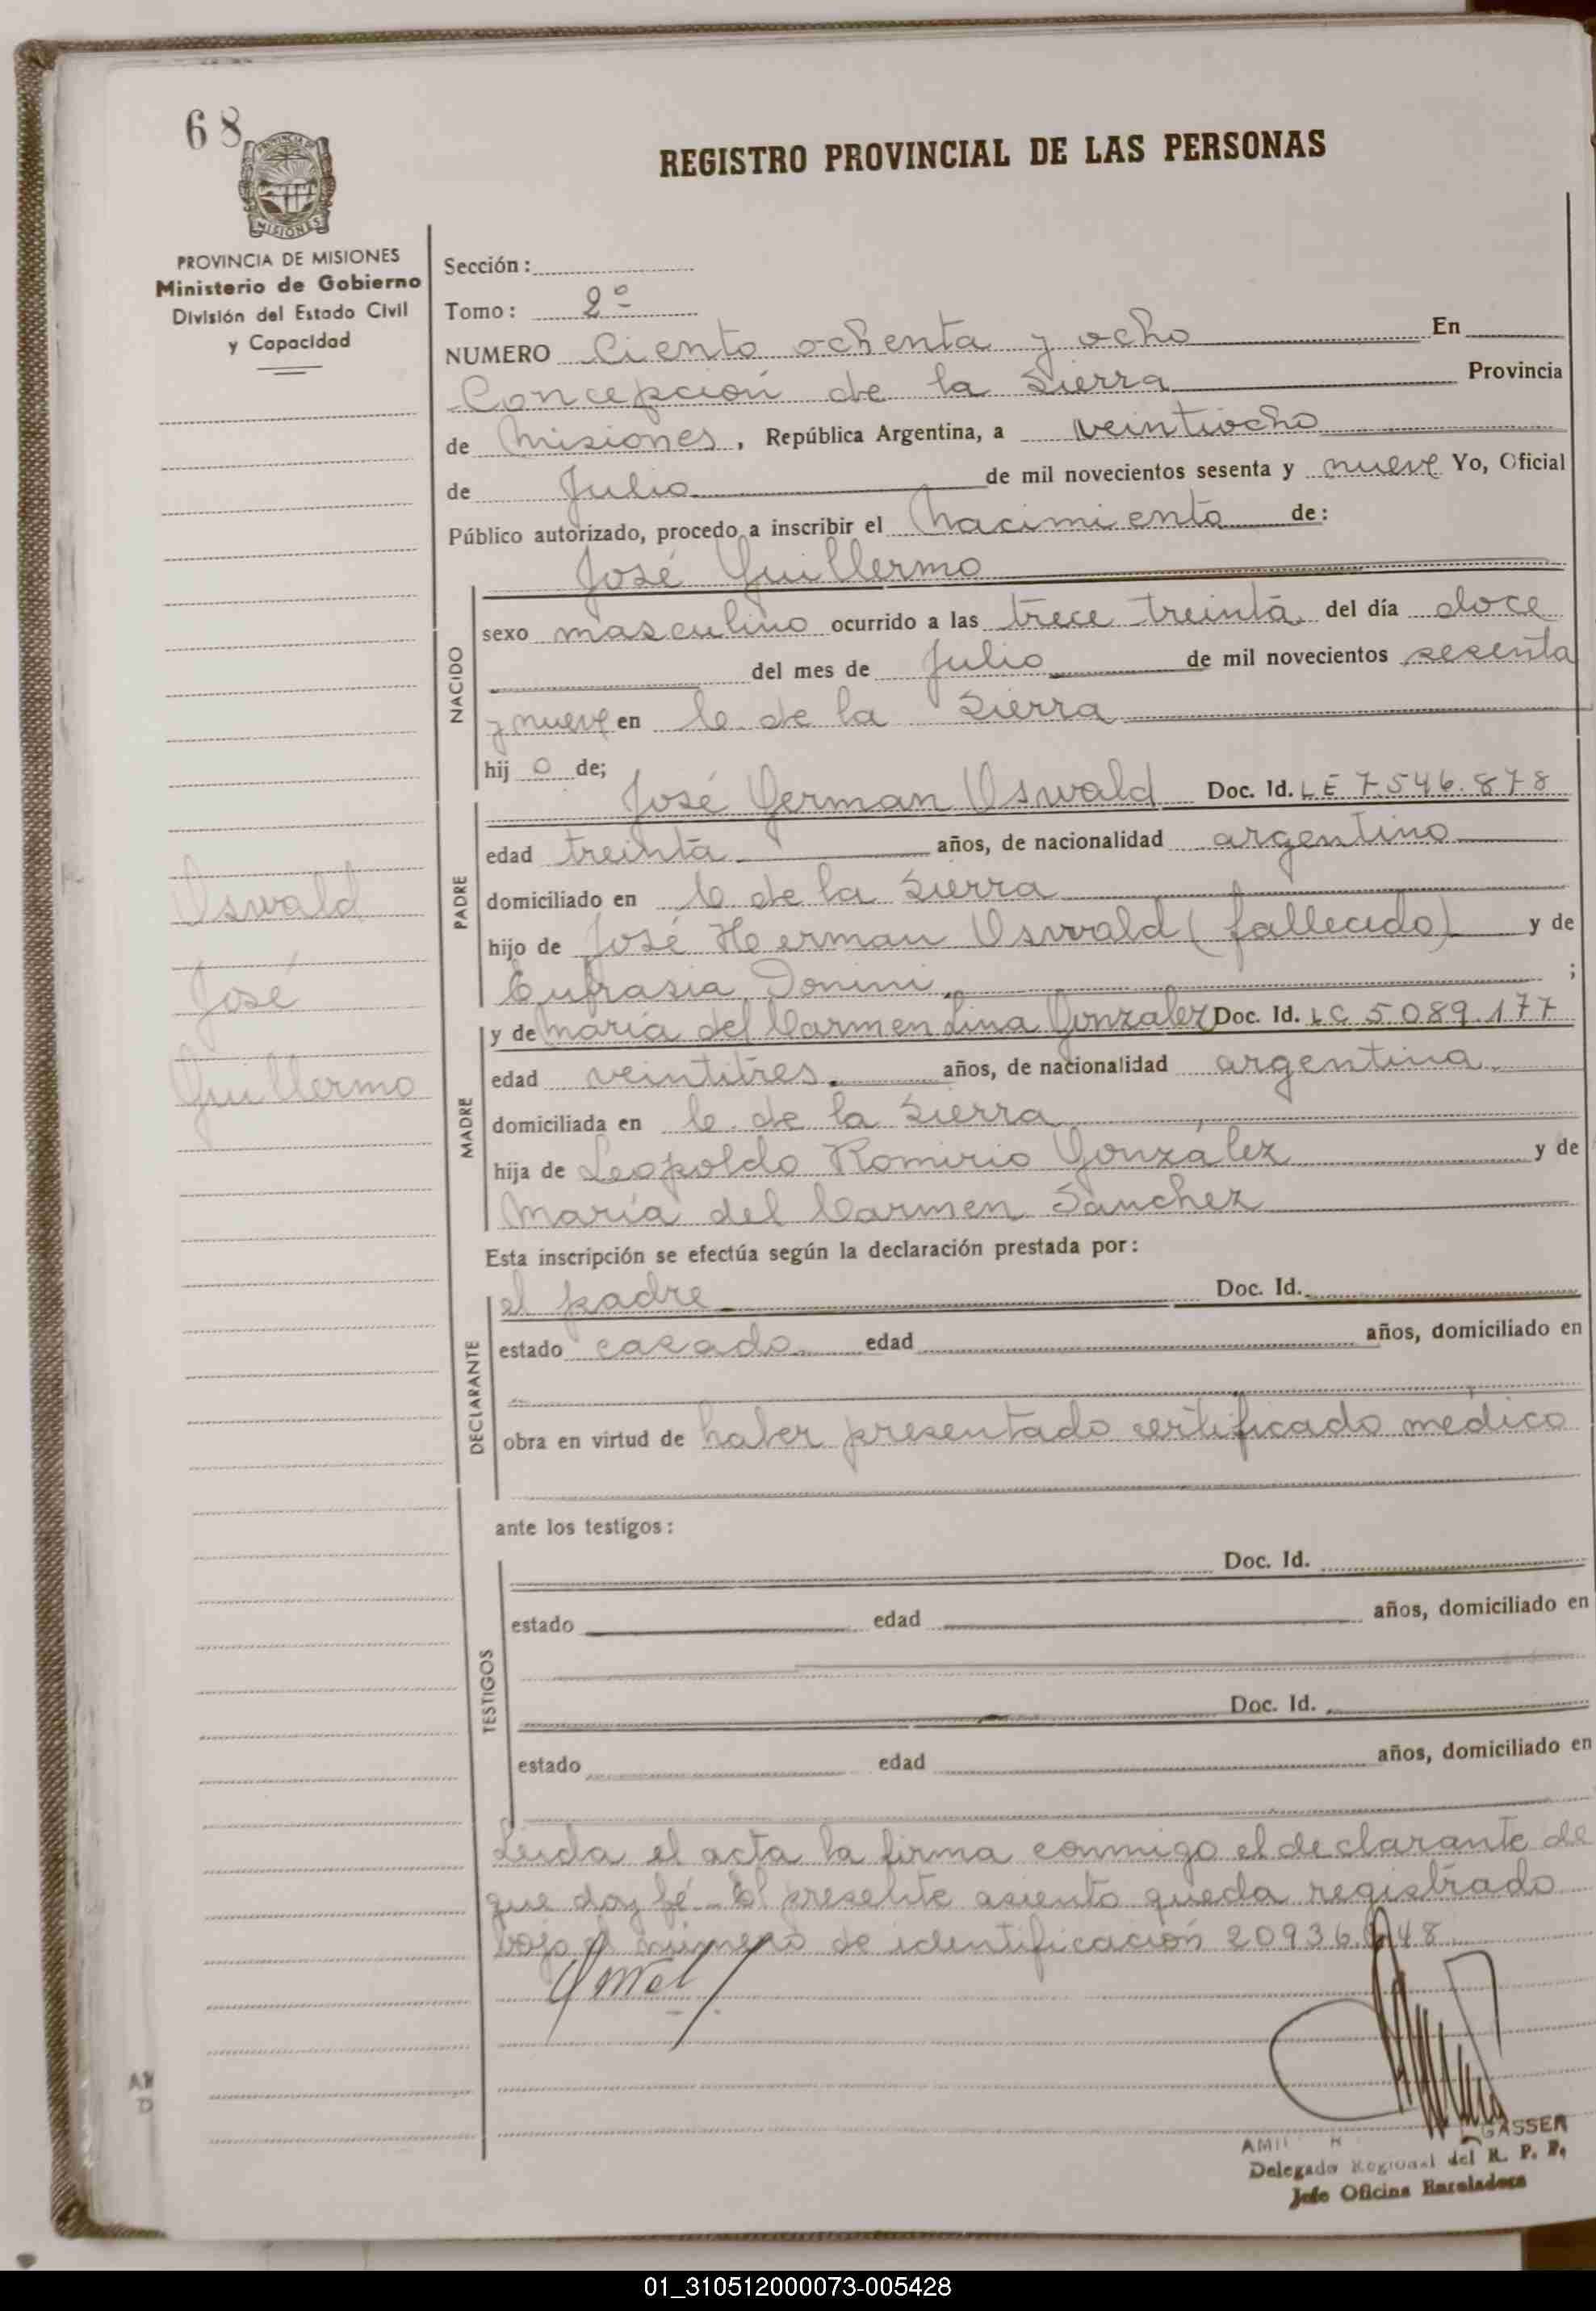 68
REGISTRO PROVINCIAL DE LAS PERSONAS
MISIONES
PROVINCIA DE MISIONES
Ministerio de Gobierno
División del Estado Civil
y Capacidad
Sección:
Tomo: 2º
NUMERO Ciento ochenta y ocho En
Concepción de la Sierra Provincia
de Misiones, República Argentina, a veintiocho
de Julio de mil novecientos sesenta y nueve Yo, Oficial
Público autorizado, procedo a inscribir el Nacimiento de:
José Guillermo
NACIDO
sexo masculino ocurrido a las trece treinta del día doce
del mes de Julio de mil novecientos sesenta
y nueve en C. de la Sierra
hij o de;
PADRE
José German Oswald Doc. Id. LE 7.546.878
edad treinta años, de nacionalidad argentino
domiciliado en C de la Sierra
hijo de José Herman Oswald (fallecido) y de
Eufrasia Donini ;
Oswald
José
Guillermo
MADRE
y de María del Carmen Lina Gonzalez Doc. Id. LC 5.089.177
edad veintitres años, de nacionalidad argentina
domiciliada en C. de la Sierra
hija de Leopoldo Romirio González y de
María del Carmen Sánchez
Esta inscripción se efectúa según la declaración prestada por:
DECLARANTE
el padre Doc. Id.
estado casado edad años, domiciliado en
obra en virtud de haber presentado certificado médico
ante los testigos:
TESTIGOS
Doc. Id.
estado edad años, domiciliado en
Doc. Id.
estado edad años, domiciliado en
Leida el acta la firma conmigo el declarante de
que doy fé. El presente asiento queda registrado
bajo el número de identificación
GASSER
Delegado Regional del R. P. P.
Jefe Oficina
01_310512000073-005428